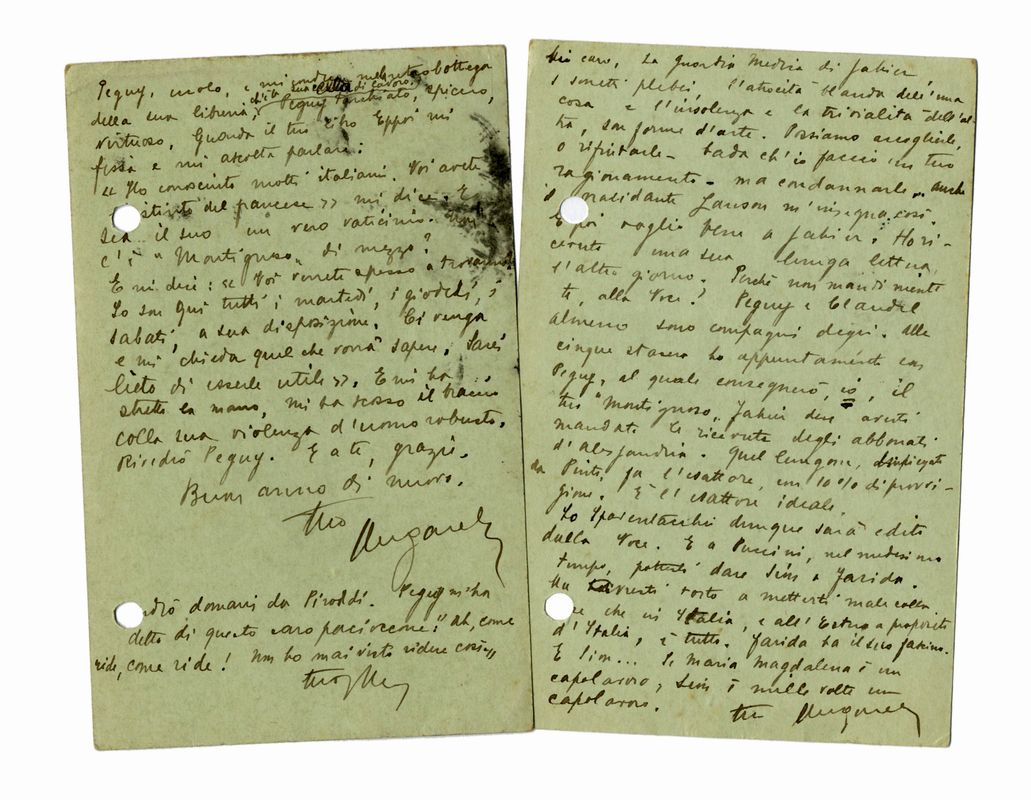 Peguy, svolo, e mi conduce nel retrobottega
ch'è la sua cella di lavoro.
della sua libreria, Peguy occhialuto, spiccio,
virtuoso. Guarda il tuo libro. Eppoi mi
fissa e mi ascolta parlare:
« Ho conosciuto molti italiani. Voi avete
istinto del francese » mi dice. E
sia il suo un vero vaticinio.
c'è "Montignoso" di mezzo.
E mi dice: « Voi verrete spesso a trovarmi
Io son qui tutti i martedì, i giovedì, i
sabati, a sua disposizione. Ci venga
e mi chieda quel che vorrà sapere. Sarei
lieto di esserle utile ». E mi ha
stretto la mano, mi ha scosso il braccio
colla sua violenza d'uomo robusto.
Rivedrò Peguy. E a te, grazie.
Buon anno di nuovo.
Tuo
Ungaretti
drò domani da Piroddi. Peguy m'ha
detto di questo caro pacioccone: "ah, come
ride, come ride! Non ho mai visto ridere così"
tuo Ung
Mio caro, La Guardia Medica di Jahier,
i sonetti plebei, l'atrocità blanda dell'una
cosa e l'insolenza e la trivialità dell'al-
tra, son forme d'arte. Possiamo accoglierle,
o rifiutarle - bada ch'io faccio un tuo
ragionamento - ma condannarle.. anche
il Lanson m'insegna così.
E poi voglio bene a Jahier. Ho ri-
cevuto una sua lunga lettera,
l'altro giorno. Perchè non mandi niente
te, alla Voce? Peguy e Claudel
almeno sono compagni degni. Alle
cinque stasera ho appuntamento con
Peguy, al quale consegnerò, io, il
tuo "Montignoso". Jahier deve averti
mandato le ricevute degli abbonati
d'Alessandria. Quel lungone, impiegato
da Pinto, fa l'esattore, con 10% di provvi-
gione. È l'esattore ideale.
Lo Sparentacchio dunque sarà edito
dalla Voce. E a Puccini, nel medesimo
tempo, potresti dare Sion e Farida.
Ma avresti torto a metterti male colla
Voce che in Italia, e all'Estero a proposito
d'Italia, è tutto. Farida ha il suo fascino.
E Sion... Se Maria Magdalena è un
capolavoro, Sion è mille volte un
capolavoro.
tuo Ungaretti